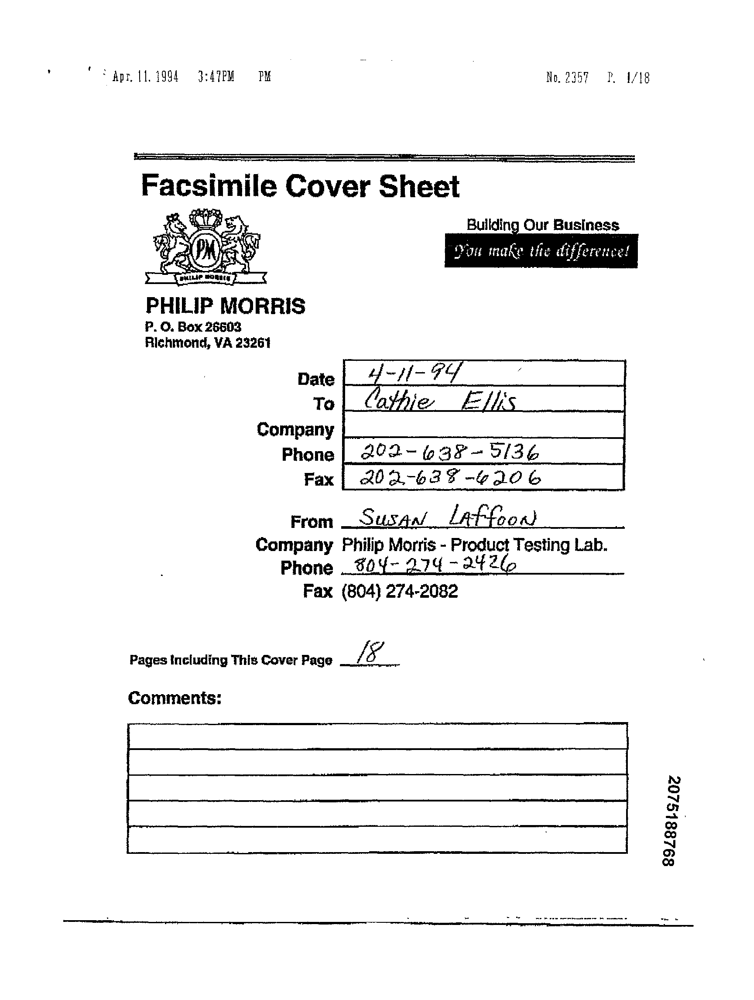 Apr. 11. 1994 3:47PM PM No. 2357 P. 1/18
Facsimile Cover Sheet
PM
PHILIP MORRIS
Building Our Business
You make the difference!
PHILIP MORRIS
P. O. Box 26603
Richmond, VA 23261
Date 4-11-94
To Cathie Ellis
Company
Phone 202-638-5136
Fax 202-638-6206
From SUSAN LAFFOON
Company Philip Morris - Product Testing Lab.
Phone 804-274-2426
Fax (804) 274-2082
Pages Including This Cover Page 18
Comments:
2075188768